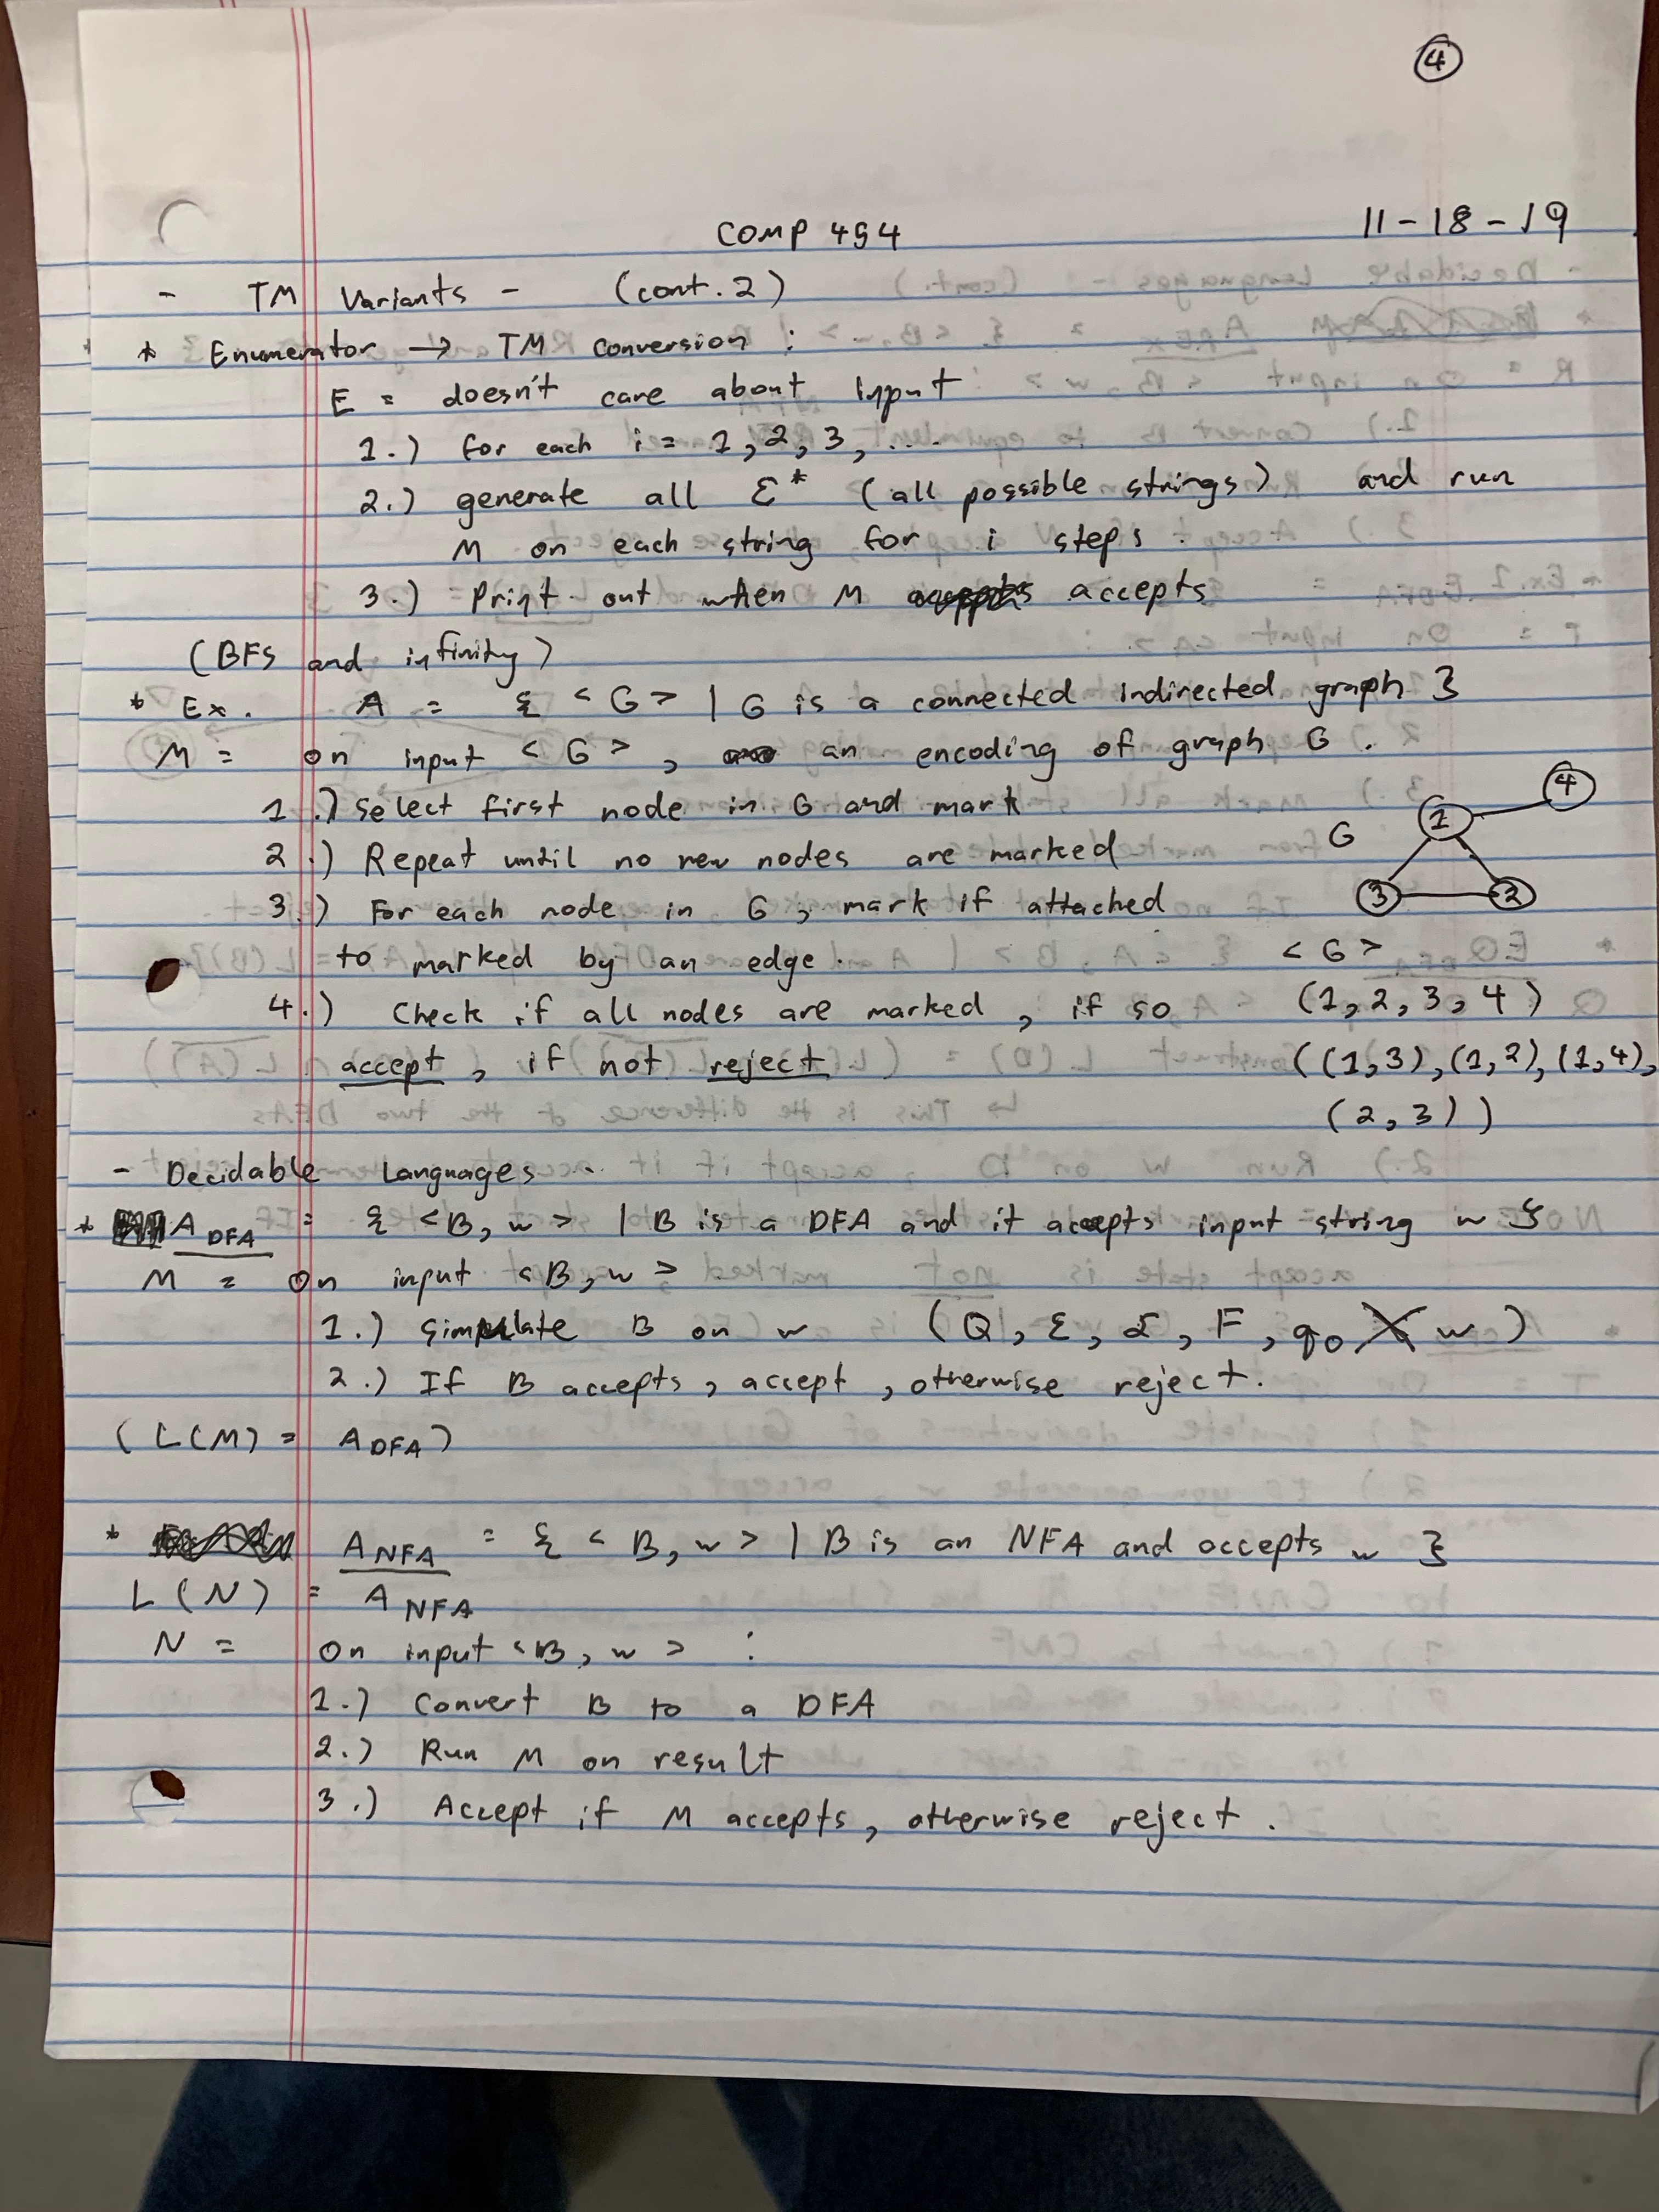 4
COMP 454
11-18-19
- TM Variants - (cont. 2)
* Enumerator → TM conversion :
E = doesn't care about input
1.) for each i = 1, 2, 3, ...
2.) generate all Σ* (all possible strings) and run
M on each string for i steps.
3.) Print out when M accepts
(BFS and infinity)
* Ex. A = { <G> | G is a connected indirected graph }
M = on input <G>, an encoding of graph G.
1.) select first node in G and mark
2.) Repeat until no new nodes are marked
3.) For each node in G, mark if attached
to marked by an edge.
4.) Check if all nodes are marked, if so
accept, if not reject
4
1
G
3 2
<G>
(1, 2, 3, 4)
((1,3), (1,2), (1,4),
(2,3))
- Decidable Languages -
* A DFA = { <B, w> | B is a DFA and it accepts input string w }
M = On input <B, w>
1.) simulate B on w (Q, Σ, δ, F, q0 w)
2.) If B accepts, accept, otherwise reject.
(L(M) = A DFA)
* A NFA = { <B, w> | B is an NFA and accepts w }
L(N) = A NFA
N = On input <B, w> :
1.) Convert B to a DFA
2.) Run M on result
3.) Accept if M accepts, otherwise reject.